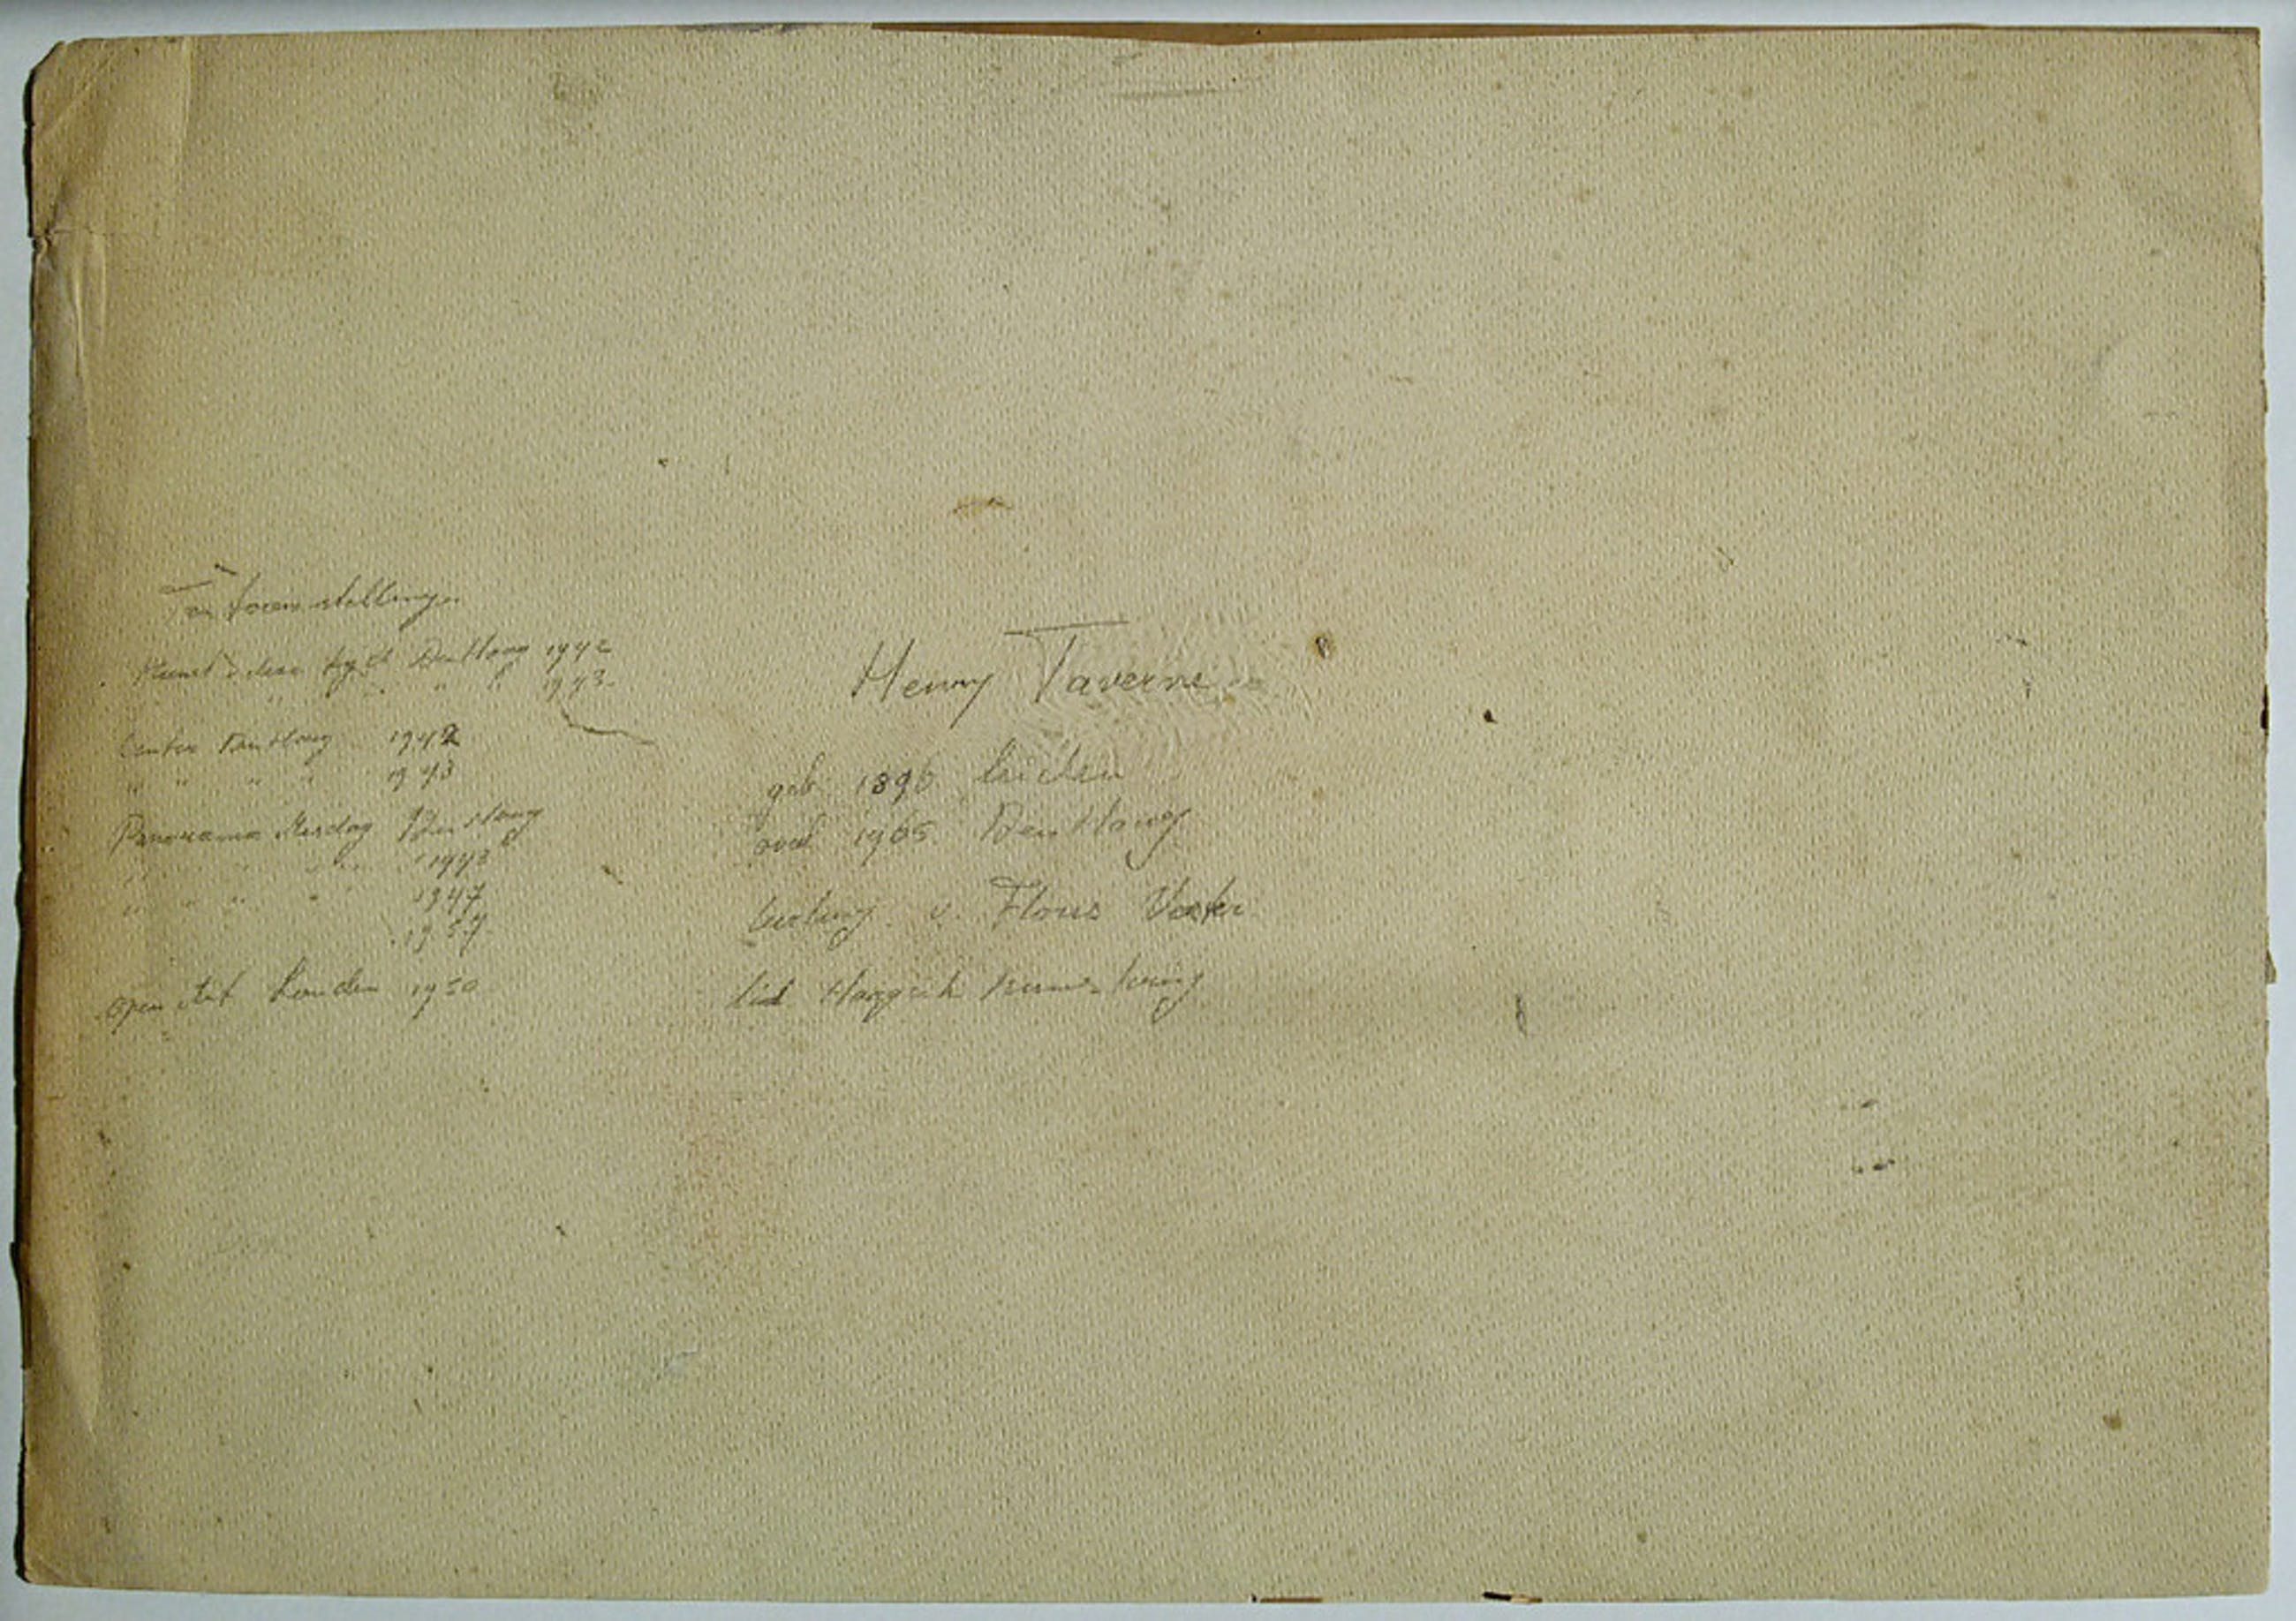 Tentoonstellingen
Kunst Den Haag 1942
" " " 1943
Center Den Haag 1942
" " " " 1943
Panorama Mesdag Den Haag
" " " " 1943
" " " " 1947
1954
Open Londen 1950
Henry Taverne
geb 1896 Leiden
overl 1965 Den Haag
leerling v. Floris Verster
lid Haagsch